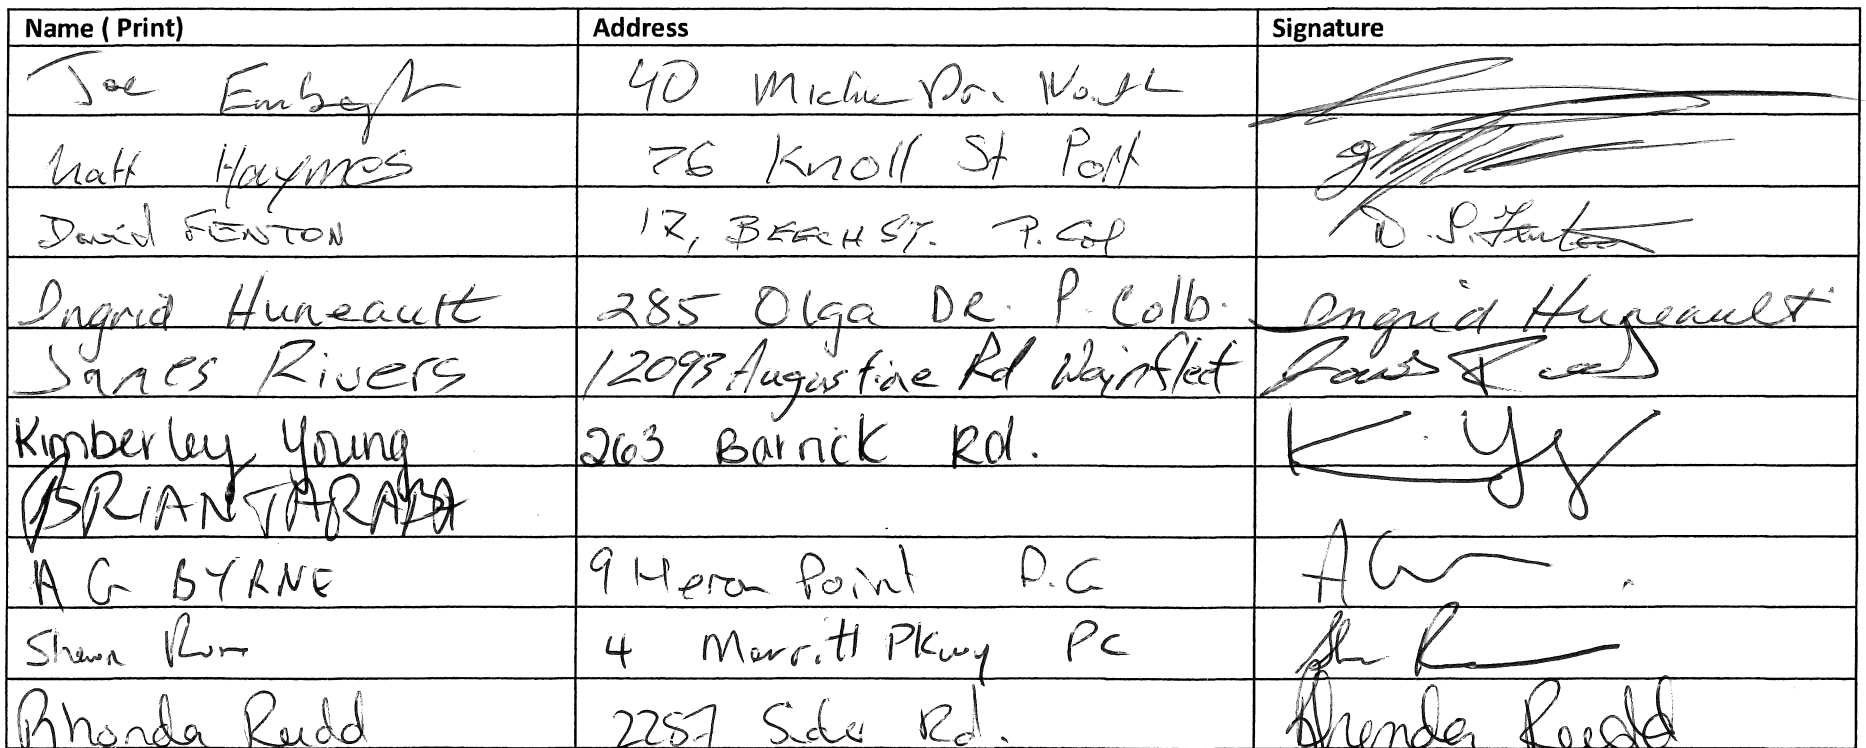 Name ( Print) Address Signature
Joe 40 Dr. North
Matt Haymes 76 Knoll St Port
David FENTON 12, BEECH ST. P. Col D. S. Fenton
Ingrid Huneault 285 Olga DR. P. Colb. Ingrid Huneault
James Rivers 12093 Augustine Rd Wainfleet James Rivers
Kimberley Young 263 Barrick Rd. K. Yg
BRIAN THARABA
A G BYRNE 9 Heron Point P.C A G
Shawn 4 Merritt Pkwy PC
Rhonda Rudd 2257 Rd. Rhonda Rudd